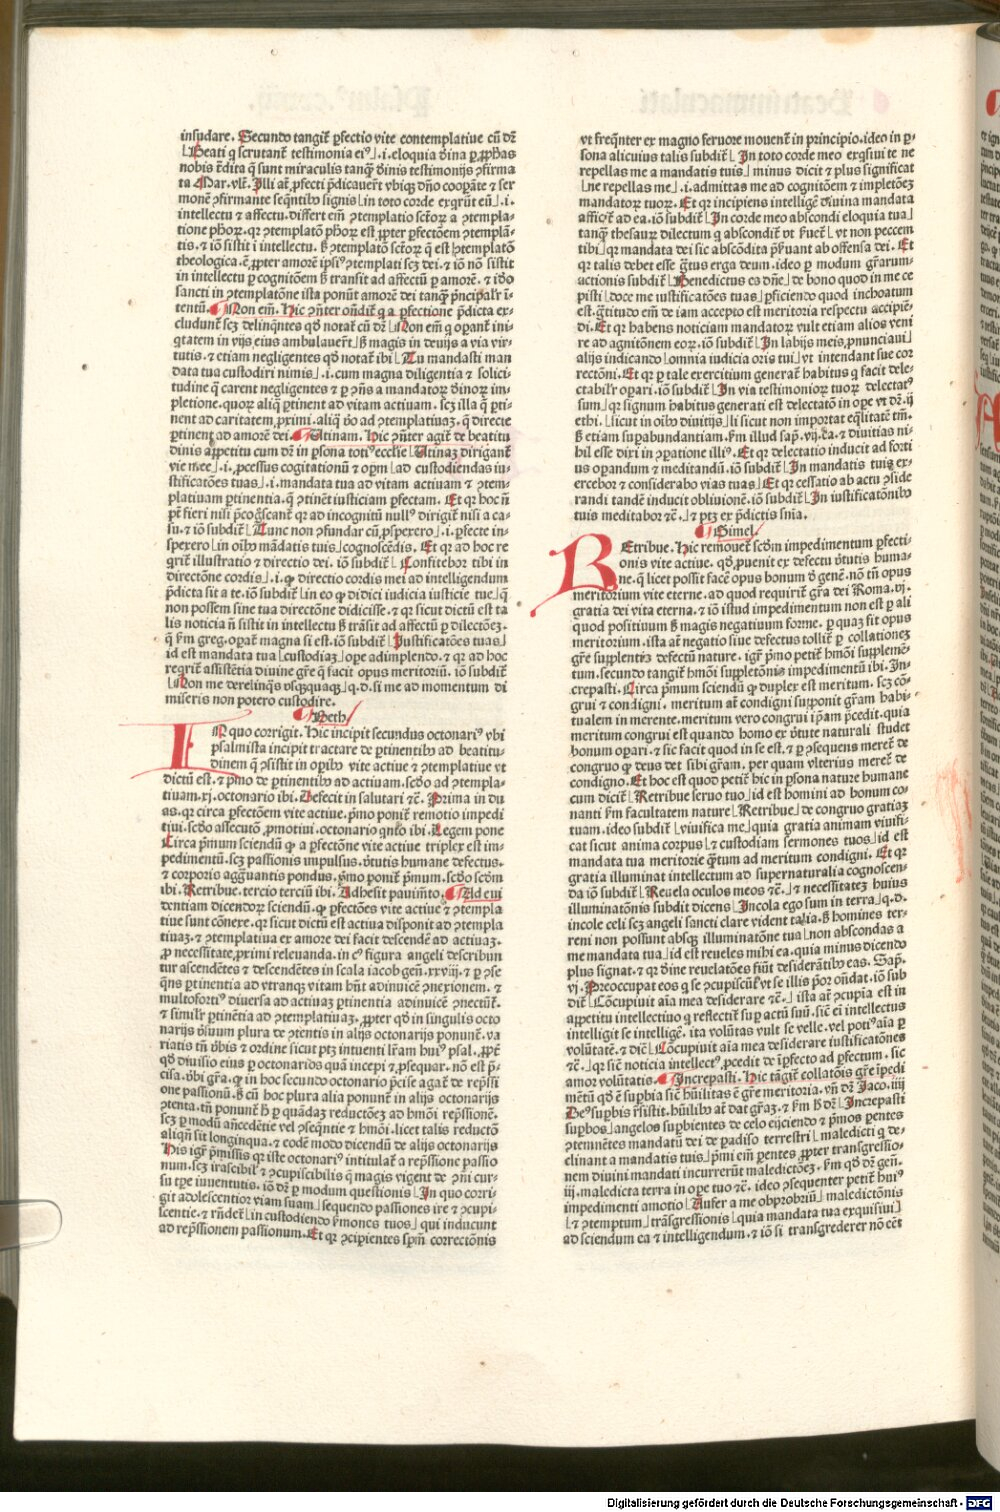 insudare. Secundo tangit̃ ꝑfectio vite contemplatiue cũ dr̃
Beati q̃ scrutant̃ testimonia eiꝰ .i. eloquia diuina ꝑ ꝓphas
nobis tradita q̃ sunt miraculis tanq̃ diuinis testimonijs ꝯfirma
ta Mar. vlt̃. Illi aũt ꝓfecti p̃dicauert̃ vbiqꝫ dño cooꝑante ⁊ ser
monẽ ꝯfirmante seq̃ntibꝰ signis in toto corde exq̃rũt eũ .i.
intellectu ⁊ affectu. differt em̃ ꝯtemplatio sctõꝝ a ꝯtempla-
tione ph̃oꝝ. qꝛ ꝯtemplatõ ph̃oꝝ est ꝓpter ꝑfectõem ꝯtemplãn-
tis. ⁊ iõ sistit i intellectu. sꝫ ꝯtemplatõ sctõꝝ q̃ est ꝯtemplatõ
theologica. ẽ ꝓpter amorẽ ipsiꝰ ꝯtemplati scꝫ dei. ⁊ iõ nõ sistit
in intellectu ꝑ cognitõem sꝫ transit ad affectũ ꝑ amorẽ. ⁊ idõ
sancti in ꝯtemplatõne ista ponũt amorẽ dei tanqꝫ p̃ncipalr̃ ĩ-
tentũ. Non em̃. Hic ꝯñter oñdit̃ q̃ a ꝑfectione p̃dicta ex-
cludunt̃ scꝫ delinq̃ntes qd̃ notat̃ cũ dr̃ Non em̃ q̃ oꝑant̃ ini
q̃tatem in vijs eius ambulauert̃ sꝫ magis in deuijs a via vir-
tutis. ⁊ etiam negligentes qd̃ notat̃ ibi Tu mandasti man
data tua custodiri nimis .i. cum magna diligentia ⁊ solici-
tudine q̃ carent negligentes ⁊ ꝑ ꝯñs a mandatoꝝ diuinoꝝ im-
pletione. quoꝝ aliq̃ ꝑtinent ad vitam actiuam. scꝫ illa q̃ ꝑti-
nent ad caritatem ꝓximi. aliq̃ vo ad ꝯtemplatiuaꝫ. q̃ directe
ꝑtinent ad amorẽ dei. Utinam. Hic ꝯñter agit̃ de beatitu
dinis appetitu cum dr̃ in ꝑsona totiꝰ ecclesie Utinaꝫ dirigant̃
vie mee .i. ꝓcessus cogitationũ ⁊ oꝑm ad custodiendas iu-
stificatões tuas .i. mandata tua ad vitam actiuam ⁊ ꝯtem-
platiuam ꝑtinentia. q̃ ꝯtinẽt iusticiam ꝑfectam. Et qꝛ hoc ñ
pt̃ fieri nisi p̃cog̃scant̃ qꝛ ad incognitũ nullꝰ dirigit̃ nisi a ca-
su. ⁊ iõ subdit̃ Tunc non ꝯfundar cũ ꝓspexero .i. ꝑfecte in-
spexero in oĩbꝰ mãdatis tuis cognoscẽdis. Et qꝛ ad hoc re
q̃rit̃ illustratio ⁊ directio dei. iõ subdit̃ Confitebor tibi in
directõne cordis .i. ꝙ directio cordis mei ad intelligendum
p̃dicta sit a te. iõ subdit̃ in eo ꝙ didici iudicia iusticie tue q̃
non possem sine tua directõne didicisse. ⁊ qꝛ sicut dictũ est ta
lis noticia ñ sistit in intellectu sꝫ trãsit ad affectũ ꝑ dilectõeꝫ.
q̃ ẜm greg. oꝑat̃ magna si est. iõ subdit̃ Justificatões tuas
id est mandata tua custodiaꝫ oꝑe adimplendo. ⁊ qꝛ ad hoc
reqrit̃ assistẽtia diuine gr̃e q̃ facit opus meritoriũ. iõ subdit̃
Non me derelinqᷤ vsqꝫquaqꝫ q. d. si me ad momentum di
miseris non potero custodire.
Beth
IN quo corrigit. Hic incipit secundus octonariꝰ vbi
psalmista incipit tractare de ꝑtinentibꝰ ad beatitu-
dinem q̃ ꝯsistit in oꝑibꝰ vite actiue ⁊ ꝯtemplatiue vt
dictũ est. ⁊ p̃mo de ꝑtinentibꝰ ad actiuam. scd̃o ad ꝯtempla-
tiuam. xj. octonario ibi. Defecit in salutari ⁊c̃. Prima in du
as. qꝛ circa ꝑfectõem vite actiue. p̃mo ponit̃ remotio impedi
tiui. scd̃o assecutõ ꝓmotiui. octonario q̃nto ibi. Legem pone
Circa p̃mum sciendũ ꝙ a ꝑfectõne vite actiue triplex est im-
pedimentũ. scꝫ passionis impulsus. v̾tutis humane defectus.
⁊ corporis agg̃uantis pondus. p̃mo ponit̃ p̃mum. scd̃o scdm̃
ibi. Retribue. tercio terciũ ibi. Adhesit pauim̃to. Ad eui
dentiam dicendoꝝ sciendũ. ꝙ ꝑfectões vite actiue ⁊ ꝯtempla
tiue sunt cõnexe. qꝛ sicut dictũ est actiua disponit ad ꝯtempla
tiuaꝫ. ⁊ ꝯtemplatiua ex amore dei facit descendẽ ad actiuaꝫ.
ꝓ necessitate ꝓximi releuanda. in cꝰ figura angeli describun
tur ascendẽtes ⁊ descendẽtes in scala iacob geñ. xxviij. ⁊ ꝑ ꝯse
q̃ns ꝑtinentia ad vtranqꝫ vitam hñt adinuicẽ ꝯnexionem. ⁊
multofortiꝰ diuersa ad actiuaꝫ ꝑtinentia adinuicẽ ꝯnectũt̃.
⁊ similr̃ ꝑtinẽtia ad ꝯtemplatiuaꝫ. ꝓpter qd̃ in singulis octo
narijs v̾suum plura de ꝯtentis in alijs octonarijs ponunt̃. va
riatis tñ v̾bis ⁊ ordine sicut ptꝫ intuenti lr̃am huiꝰ psal. ꝓpt̃
qd̃ diuisio eius ꝑ octonarios quã incepi ⁊ ꝓsequar. nõ est p̃-
cisa. v̾bi gr̃a. ꝙ in hoc secundo octonario p̃cise agat̃ de rep̃ssi
one passionũ. sꝫ cũ hoc plura alia ponunt̃ in alijs octonarijs
ꝯtenta. tñ ponunt̃ h̃ ꝑ quãdaꝫ reductõeꝫ ad hmõi rep̃ssionẽ.
scꝫ ꝑ modũ añcedẽtie vel ꝯseq̃ntie ⁊ hmõi. licet talis reductõ
aliqñ sit longinqua. ⁊ eodẽ modo dicendũ de alijs octonarijs
His igit̃ p̃missis qꝛ iste octonariꝰ intitulat̃ a rep̃ssione passio
num. scꝫ irascibil̃ ⁊ ꝯcupiscibilis q̃ magis vigent de ꝯñi cur-
su tꝑe iuuentutis. iõ dr̃ ꝑ modum questionis In quo corri-
git adolescentior viam suam sequendo passiones ire ⁊ ꝯcupi-
scentie. ⁊ rñdet̃ in custodiendo s̾mones tuos qui inducunt
ad rep̃ssionem passionum. Et qꝛ ꝯcipientes spm̃ correctõnis
vt freq̃nter ex magno feruore mouent̃ in principio. ideo in ꝑ-
sona alicuius talis subdit̃ In toto corde meo exq̃siui te ne
repellas me a mandatis tuis minus dicit ⁊ plus significat
ne repellas me .i. admittas me ad cognitõem ⁊ impletõeꝫ
mandatoꝝ tuoꝝ. Et qꝛ incipiens intelligẽ diuina mandata
afficit̃ ad ea. iõ subdit̃ In corde meo abscondi eloquia tua
tanqꝫ thesauꝝ dilectum q̃ abscondit̃ vt s̾uet̃ vt non peccem
tibi qꝛ mandata dei sic abscõdita p̃s̾uant ab offensa dei. Et
qꝛ talis debet esse g̃tus erga deum. ideo ꝑ modum gr̃arum-
actionis subdit̃ Benedictus es dñe de bono quod in me ce
pisti doce me iustificatões tuas ꝑficiendo quod inchoatum
est. g̃titudo em̃ de iam accepto est meritoria respectu accipiẽ-
di. Et qꝛ habens noticiam mandatoꝝ vult etiam alios veni
re ad agnitõnem eoꝝ. iõ subdit̃ In labijs meis ꝓnunciaui
alijs indicando omnia iudicia oris tui vt intendant sue cor
rectõni. Et qꝛ ꝑ tale exercitium generat̃ habitus q̃ facit dele-
ctabilr̃ oꝑari. iõ subdit̃ In via testimonioꝝ tuoꝝ delectatꝰ
sum qꝛ signum habitus generati est delectatõ in oꝑe vt dr̃. ij
ethi. sicut in oĩbꝰ diuitijs li sicut non importat eq̃litatẽ tm̃.
sꝫ etiam suꝑabundantiam. ẜm illud sap̃. vij. ca. ⁊ diuitias ni-
hil esse dixi in ꝯꝑatione illiꝰ. Et qꝛ delectatio inducit ad forti
us oꝑandum ⁊ meditandũ. iõ subdit̃ In mandatis tuis ex-
ercebor ⁊ considerabo vias tuas Et qꝛ cessatio ab actu ꝯside
randi tandẽ inducit obliuionẽ. iõ subdit̃ In iustificatõnibꝰ
tuis meditabor ⁊c̃. ⁊ ptꝫ ex p̃dictis snĩa.
Gimel
REtribue. Hic remouet̃ scdm̃ impedimentum ꝑfecti-
onis vite actiue. qd̃ ꝓuenit ex defectu v̾tutis huma-
ne. q̃ licet possit facẽ opus bonum d̾ genẽ. nõ tñ opus
meritorium vite eterne. ad quod requirit̃ gr̃a dei Roma. vj.
gratia dei vita eterna. ⁊ iõ istud impedimentum non est ꝑ ali
quod positiuum sꝫ magis negatiuum forme. ꝑ quaꝫ fit opus
meritorium. ista aũt negatio siue defectus tollit̃ ꝑ collationeꝫ
gr̃e supplentis defectũ nature. igit̃ p̃mo petit̃ hmõi supplemẽ-
tum. secundo tangit̃ hmõi suppletõnis impedimentũ ibi. In-
crepasti. Circa p̃mum sciendũ ꝙ duplex est meritum. scꝫ cõ-
grui ⁊ condigni. meritum aũt condigni supponit gr̃am habi-
tualem in merente. meritum vero congrui ip̃am p̃cedit. quia
meritum congrui est quando homo ex v̾tute naturali studet
bonum oꝑari. ⁊ sic facit quod in se est. ⁊ ꝑ ꝯsequens meret̃ de
congruo ꝙ deus det sibi gr̃am. per quam vlterius meret̃ de
condigno. Et hoc est quod petit̃ hic in ꝑsona nature humane
cum dicit̃ Retribue seruo tuo id est homini ad bonum co-
nanti ẜm facultatem nature Retribue de congruo gratiaꝫ
tuam. ideo subdit̃ viuifica me quia gratia animam viuifi-
cat sicut anima corpus ⁊ custodiam sermones tuos id est
mandata tua meritorie q̃ntum ad meritum condigni. Et qꝛ
gratia illuminat intellectum ad supernaturalia cognoscen-
da iõ subdit̃ Reuela oculos meos ⁊c̃. ⁊ necessitateꝫ huius
illuminatõnis subdit dicens Incola ego sum in terra q. d.
incole celi scꝫ angeli sancti clare vident talia. sꝫ homines ter-
reni non possunt absqꝫ illuminatõne tua non abscondas a
me mandata tua id est reueles mihi ea. quia minus dicendo
plus signat. ⁊ qꝛ diuine reuelatões fiũt desiderãtibꝰ eas. Sap̃.
vj. Preoccupat eos q̃ se ꝯcupiscũt vt se illis pͥor oñdat. iõ sub
dit̃ Cõcupiuit aĩa mea desiderare ⁊c̃. ista aũt ꝯcupĩa est in
appetitu intellectiuo q̃ reflectit̃ suꝑ actũ suũ. sicẽ em̃ intellectus
intelligit se intelligẽ. ita volũtas vult se velle. vel potiꝰ aĩa ꝑ
volũtatẽ. ⁊ dic̃ Cõcupiuit aĩa mea desiderare iustificatões
⁊c̃. qꝛ sic̃ noticia intellectꝰ ꝓcedit de ĩꝑfecto ad ꝑfectum. sic
amor volũtatis. Increpasti. Hic tãgit̃ collatõis gr̃e ĩpedi
mẽtũ qd̃ ẽ suꝑbia sic̃ hũilitas ẽ gr̃e meritoria. vñ dr̃ Jaco. iiij
Deꝰ suꝑbis r̃sistit. hũilibꝰ aũt dat gr̃aꝫ. ⁊ ẜm h̾ dr̃ Increpasti
suꝑbos angelos suꝑbientes de celo eijciendo ⁊ p̃mos ꝑentes
ꝯtemnẽtes mandatũ dei de ꝑadiso terrestri maledicti q̃ de-
clinant a mandatis tuis p̃mi em̃ ꝑentes ꝓpter transgressio-
nem diuini mandati incurrerũt maledictõeꝫ. ẜm qd̃ dr̃ geñ.
iij. maledicta terra in oꝑe tuo ⁊c̃. ideo ꝯsequenter petit̃ huiꝰ
impedimenti amotio Aufer a me obprobriũ maledictõnis
⁊ ꝯtemptum trãsgressionis quia mandata tua exquisiui
ad sciendum ea ⁊ intelligendum. ⁊ iõ si transgrederer nõ eẽt
Digitalisierung gefördert durch die Deutsche Forschungsgemeinschaft - DFG